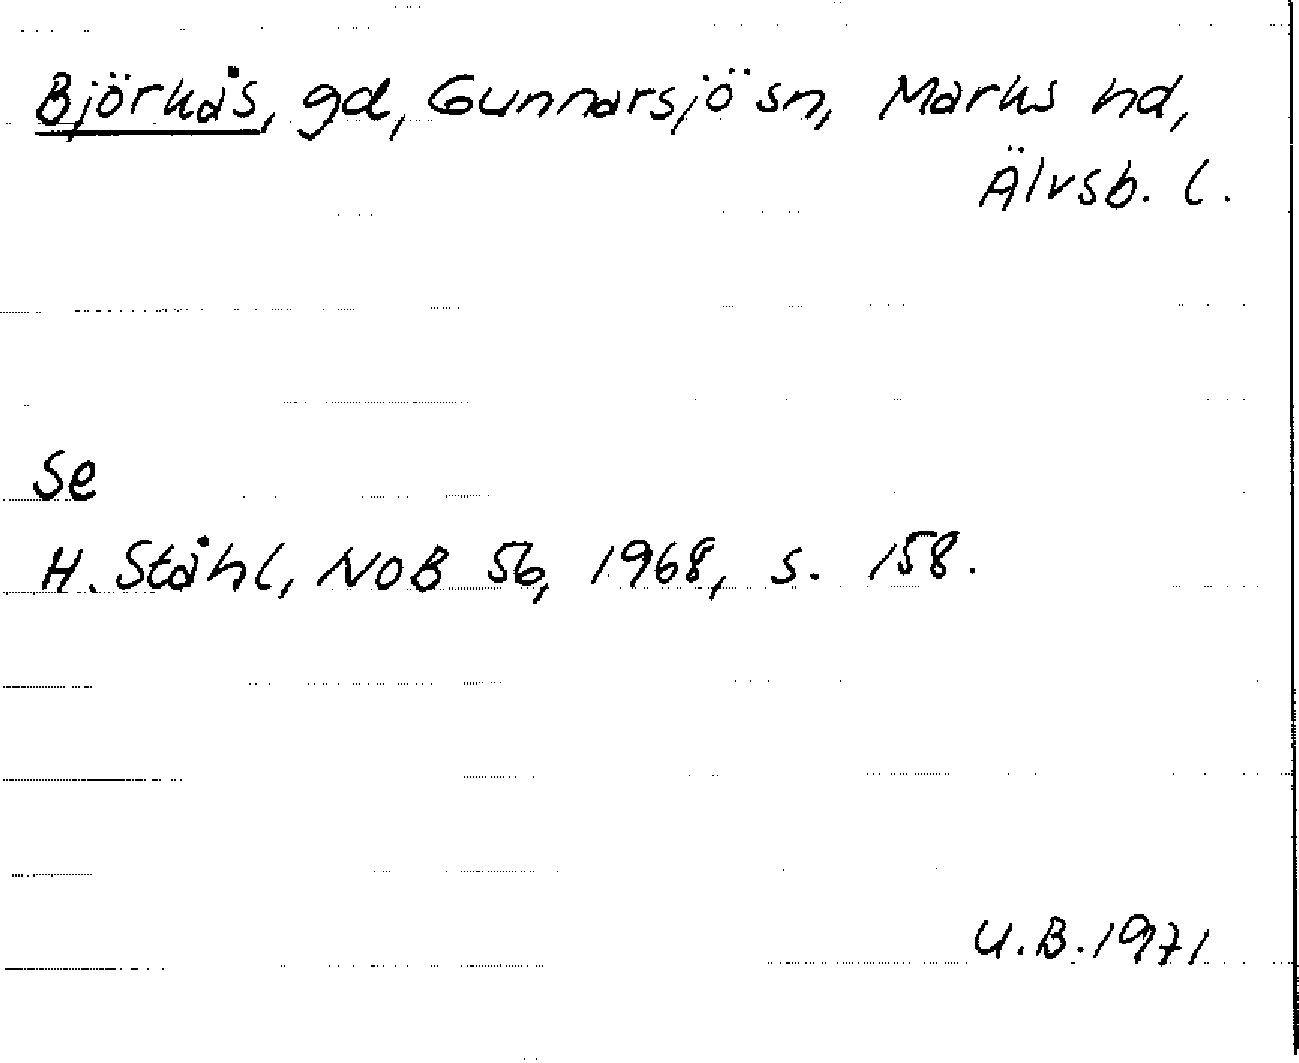 Björkås, gd, Gunnarsjö sn, Marks hd,
Älvsb. l.
Se
H. Ståhl, NoB 56, 1968, s. 158.
U.B. 1971